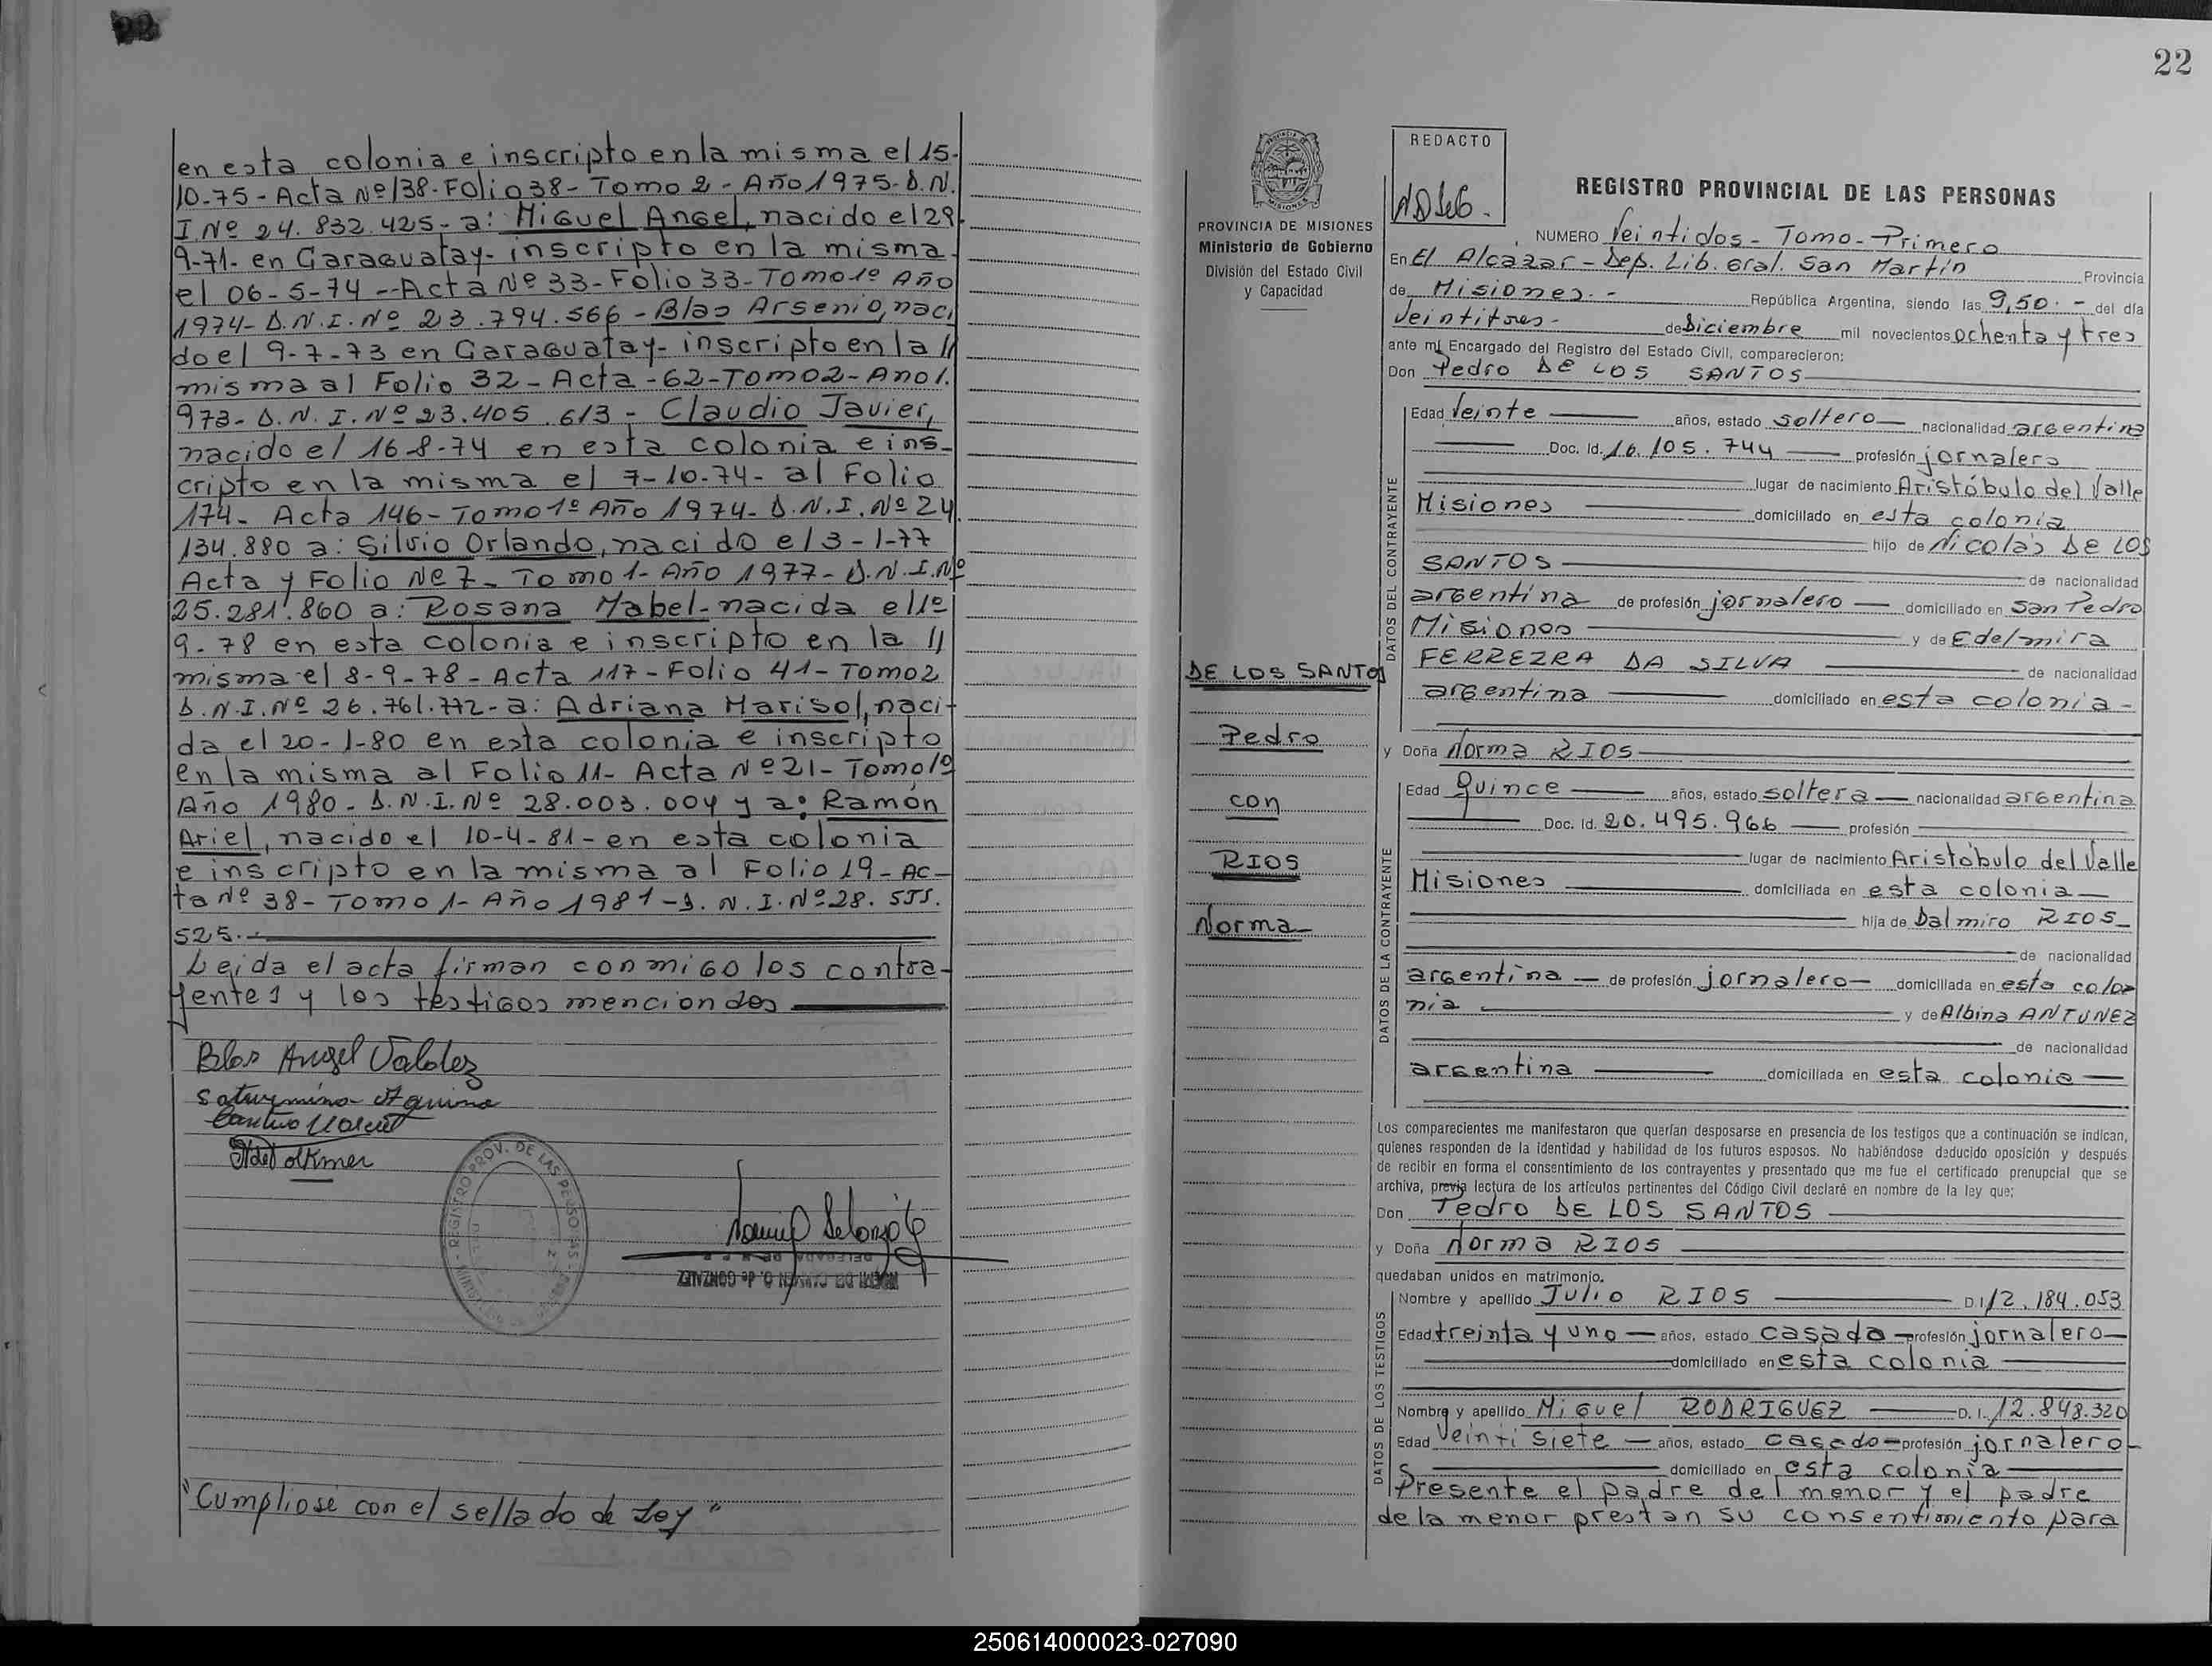 en esta colonia e inscripto en la misma el 15-
10-75 - Acta Nº 138 - Folio 38 - Tomo 2 - Año 1975 - D.N.
I. Nº 24.832.425 - a: Miguel Angel, nacido el 29-
9-71- en Garaguatay- inscripto en la misma
el 06-5-74 -- Acta Nº 33 - Folio 33 - Tomo 1º Año
1974 - D.N.I. Nº 23.794.566 - Blas Arsenio, naci
do el 9-7-73 en Garaguatay- inscripto en la //
misma al Folio 32 - Acta -62- Tomo 2 - Año 1.
973 - D.N.I. Nº 23.405.613 - Claudio Javier,
nacido el 16-8-74 en esta colonia e ins-
cripto en la misma el 7-10-74- al Folio
174 - Acta 146 - Tomo 1º Año 1974 - D.N.I. Nº 24.
134.880 a: Silvio Orlando, nacido el 3-1-77
Acta y Folio Nº 7 - Tomo 1- Año 1977 - D.N.I. Nº
25.281.860 a: Rosana Mabel - nacida el 1º
9-78 en esta colonia e inscripto en la //
misma el 8-9-78 - Acta 117 - Folio 41 - Tomo 2
D.N.I. Nº 26.761.772 - a: Adriana Marisol, naci-
da el 20-1-80 en esta colonia e inscripto
en la misma al Folio 11 - Acta Nº 21 - Tomo 1º
Año 1980 - D.N.I. Nº 28.003.004 y a: Ramón
Ariel, nacido el 10-4-81 - en esta colonia
e inscripto en la misma al Folio 19 - Ac-
ta Nº 38 - Tomo 1- Año 1981 - D.N.I. Nº 28.555.
525.-
Leida el acta firman conmigo los contra-
yentes y los testigos menciondos
Blas Angel Valdez
Saturnino Aquino
REGISTRO PROV. DE LAS PERSONAS
NOEMI DEL CARMEN O. de GONZALEZ
"Cumpliose con el sellado de Ley"
22
REDACTO
PROVINCIA DE MISIONES
Ministerio de Gobierno
División del Estado Civil
y Capacidad
REGISTRO PROVINCIAL DE LAS PERSONAS
NUMERO Veintidos - Tomo - Primero
En El Alcazar - Dep. Lib. Gral. San Martín Provincia
de Misiones.- República Argentina, siendo las 9,50.- del día
Veintitres- de Diciembre mil novecientos ochenta y tres
ante mí Encargado del Registro del Estado Civil, comparecieron:
Don Pedro DE LOS SANTOS
DATOS DEL CONTRAYENTE
Edad Veinte años, estado soltero nacionalidad argentina
Doc. Id. 16.105.744 profesión jornalero
lugar de nacimiento Aristóbulo del Valle
Misiones domiciliado en esta colonia
hijo de Nicolás DE LOS
SANTOS de nacionalidad
argentina de profesión jornalero domiciliado en San Pedro
Misiones y de Edelmira
FERREZRA DA SILVA de nacionalidad
argentina domiciliado en esta colonia -
y Doña Norma RIOS
DATOS DE LA CONTRAYENTE
Edad Quince años, estado soltera nacionalidad argentina
Doc. Id. 20.495.966 profesión
lugar de nacimiento Aristóbulo del Valle
Misiones domiciliada en esta colonia
hija de Dalmiro RIOS
de nacionalidad
argentina de profesión jornalero domiciliada en esta colo
nia y de Albina ANTUNEZ
de nacionalidad
argentina domiciliada en esta colonia
DE LOS SANTOS
Pedro
con
RIOS
Norma
Los comparecientes me manifestaron que querían desposarse en presencia de los testigos que a continuación se indican,
quienes responden de la identidad y habilidad de los futuros esposos. No habiéndose deducido oposición y después
de recibir en forma el consentimiento de los contrayentes y presentado que me fue el certificado prenupcial que se
archiva, previa lectura de los artículos pertinentes del Código Civil declaré en nombre de la ley que;
Don Pedro DE LOS SANTOS
y Doña Norma RIOS
quedaban unidos en matrimonio.
DATOS DE LOS TESTIGOS
Nombre y apellido Julio RIOS D.I. 12.184.053
Edad treinta y uno años, estado casado profesión jornalero
domiciliado en esta colonia
Nombre y apellido Miguel RODRIGUEZ D.I. 12.848.320
Edad Veintisiete años, estado casado profesión jornalero
domiciliado en esta colonia
Presente el padre del menor y el padre
de la menor prestan su consentimiento para
250614000023-027090